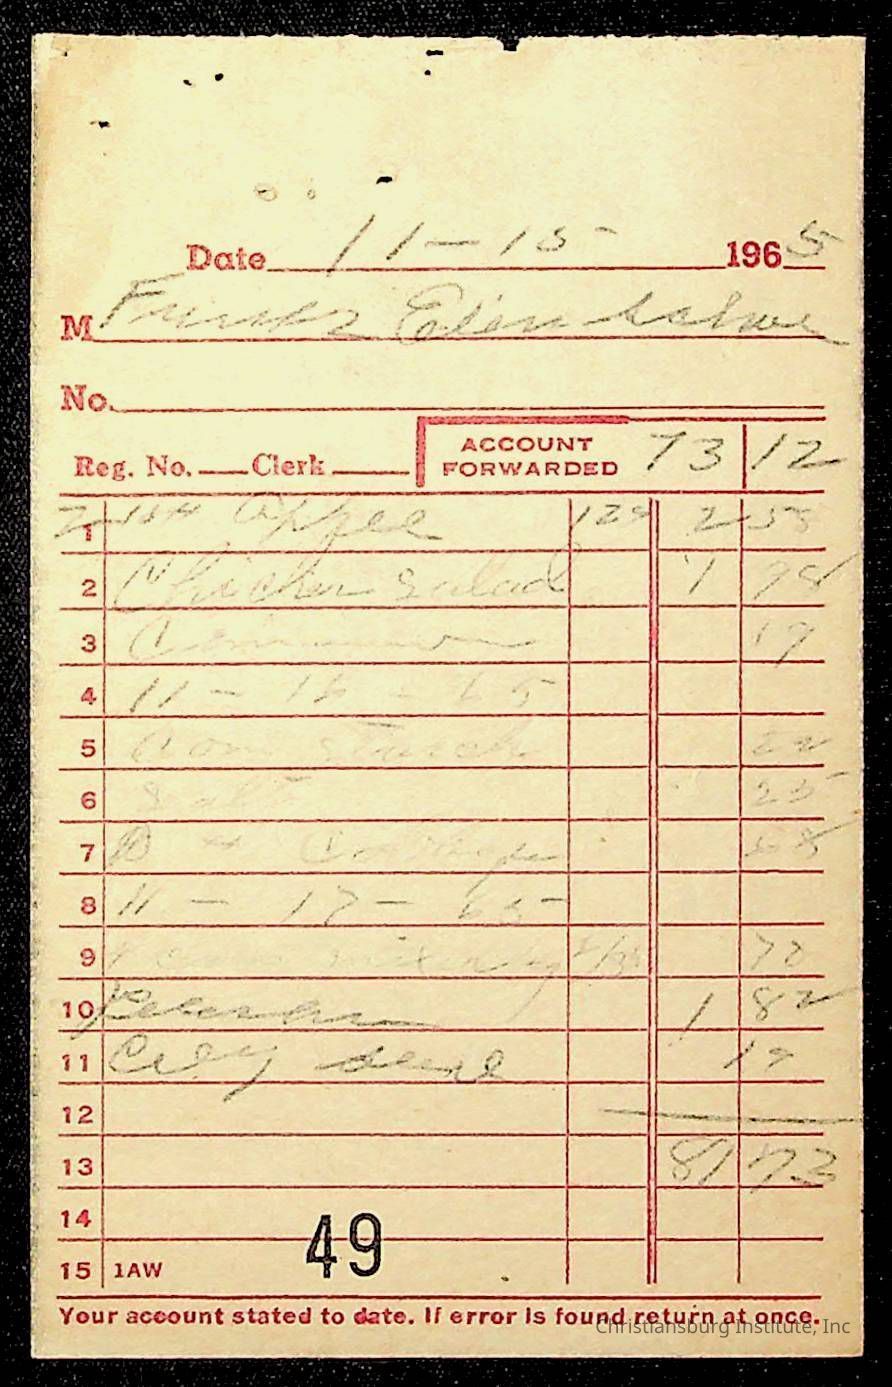 Date 11-15- 1965
M Franks Elem School
No.
Reg. No. Clerk
ACCOUNT FORWARDED 73 12
1 2 10# Apple 129 2 58
2 Chicken Salad 1 98
3 Cinnamon 19
4 11 - 16 - 65
5 Corn Starch 22
6 Salt 25
7 D
8 11 - 17 - 65
9 70
10 1 82
11 Cel seed 19
12
13 81 73
14
15 1AW
49
Your account stated to date. If error is found return at once.
Christiansburg Institute, Inc